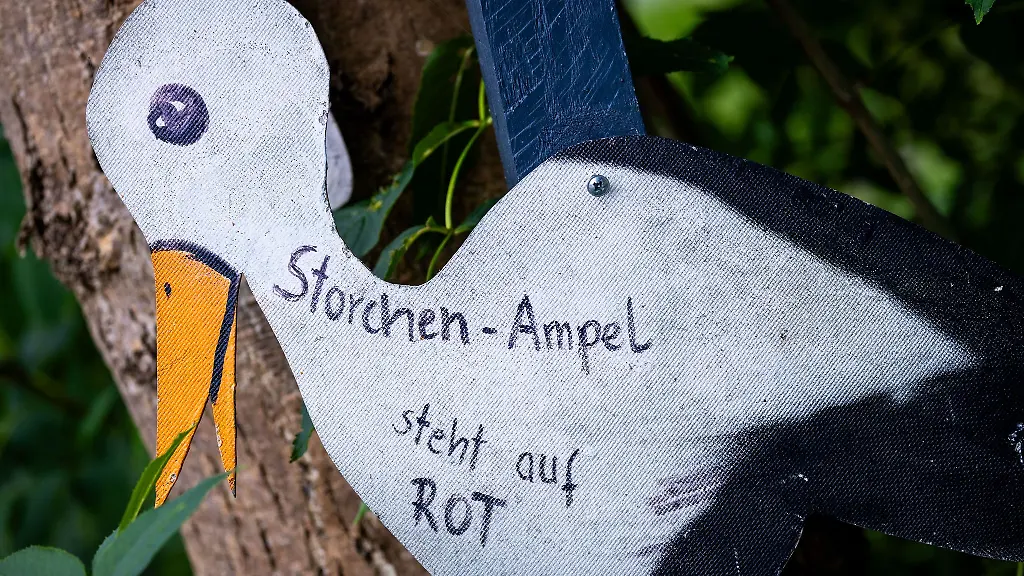 Storchen-Ampel
steht auf
ROT